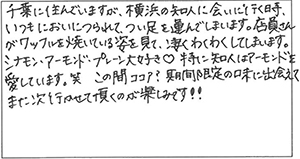 千葉に住んでいますが、横浜の知人に会いに行く時、
いつもにおいにつられて、つい足を運んでしまいます。店員さん
がワッフルを焼いている姿を見て、凄くわくわくしてしまいます。
シナモン・アーモンド・プレーン大好き♡ 特に知人はアーモンドを
愛しています。笑 この間ココア？期間限定の味に出会えて
また次行かせて頂くのが楽しみです!!